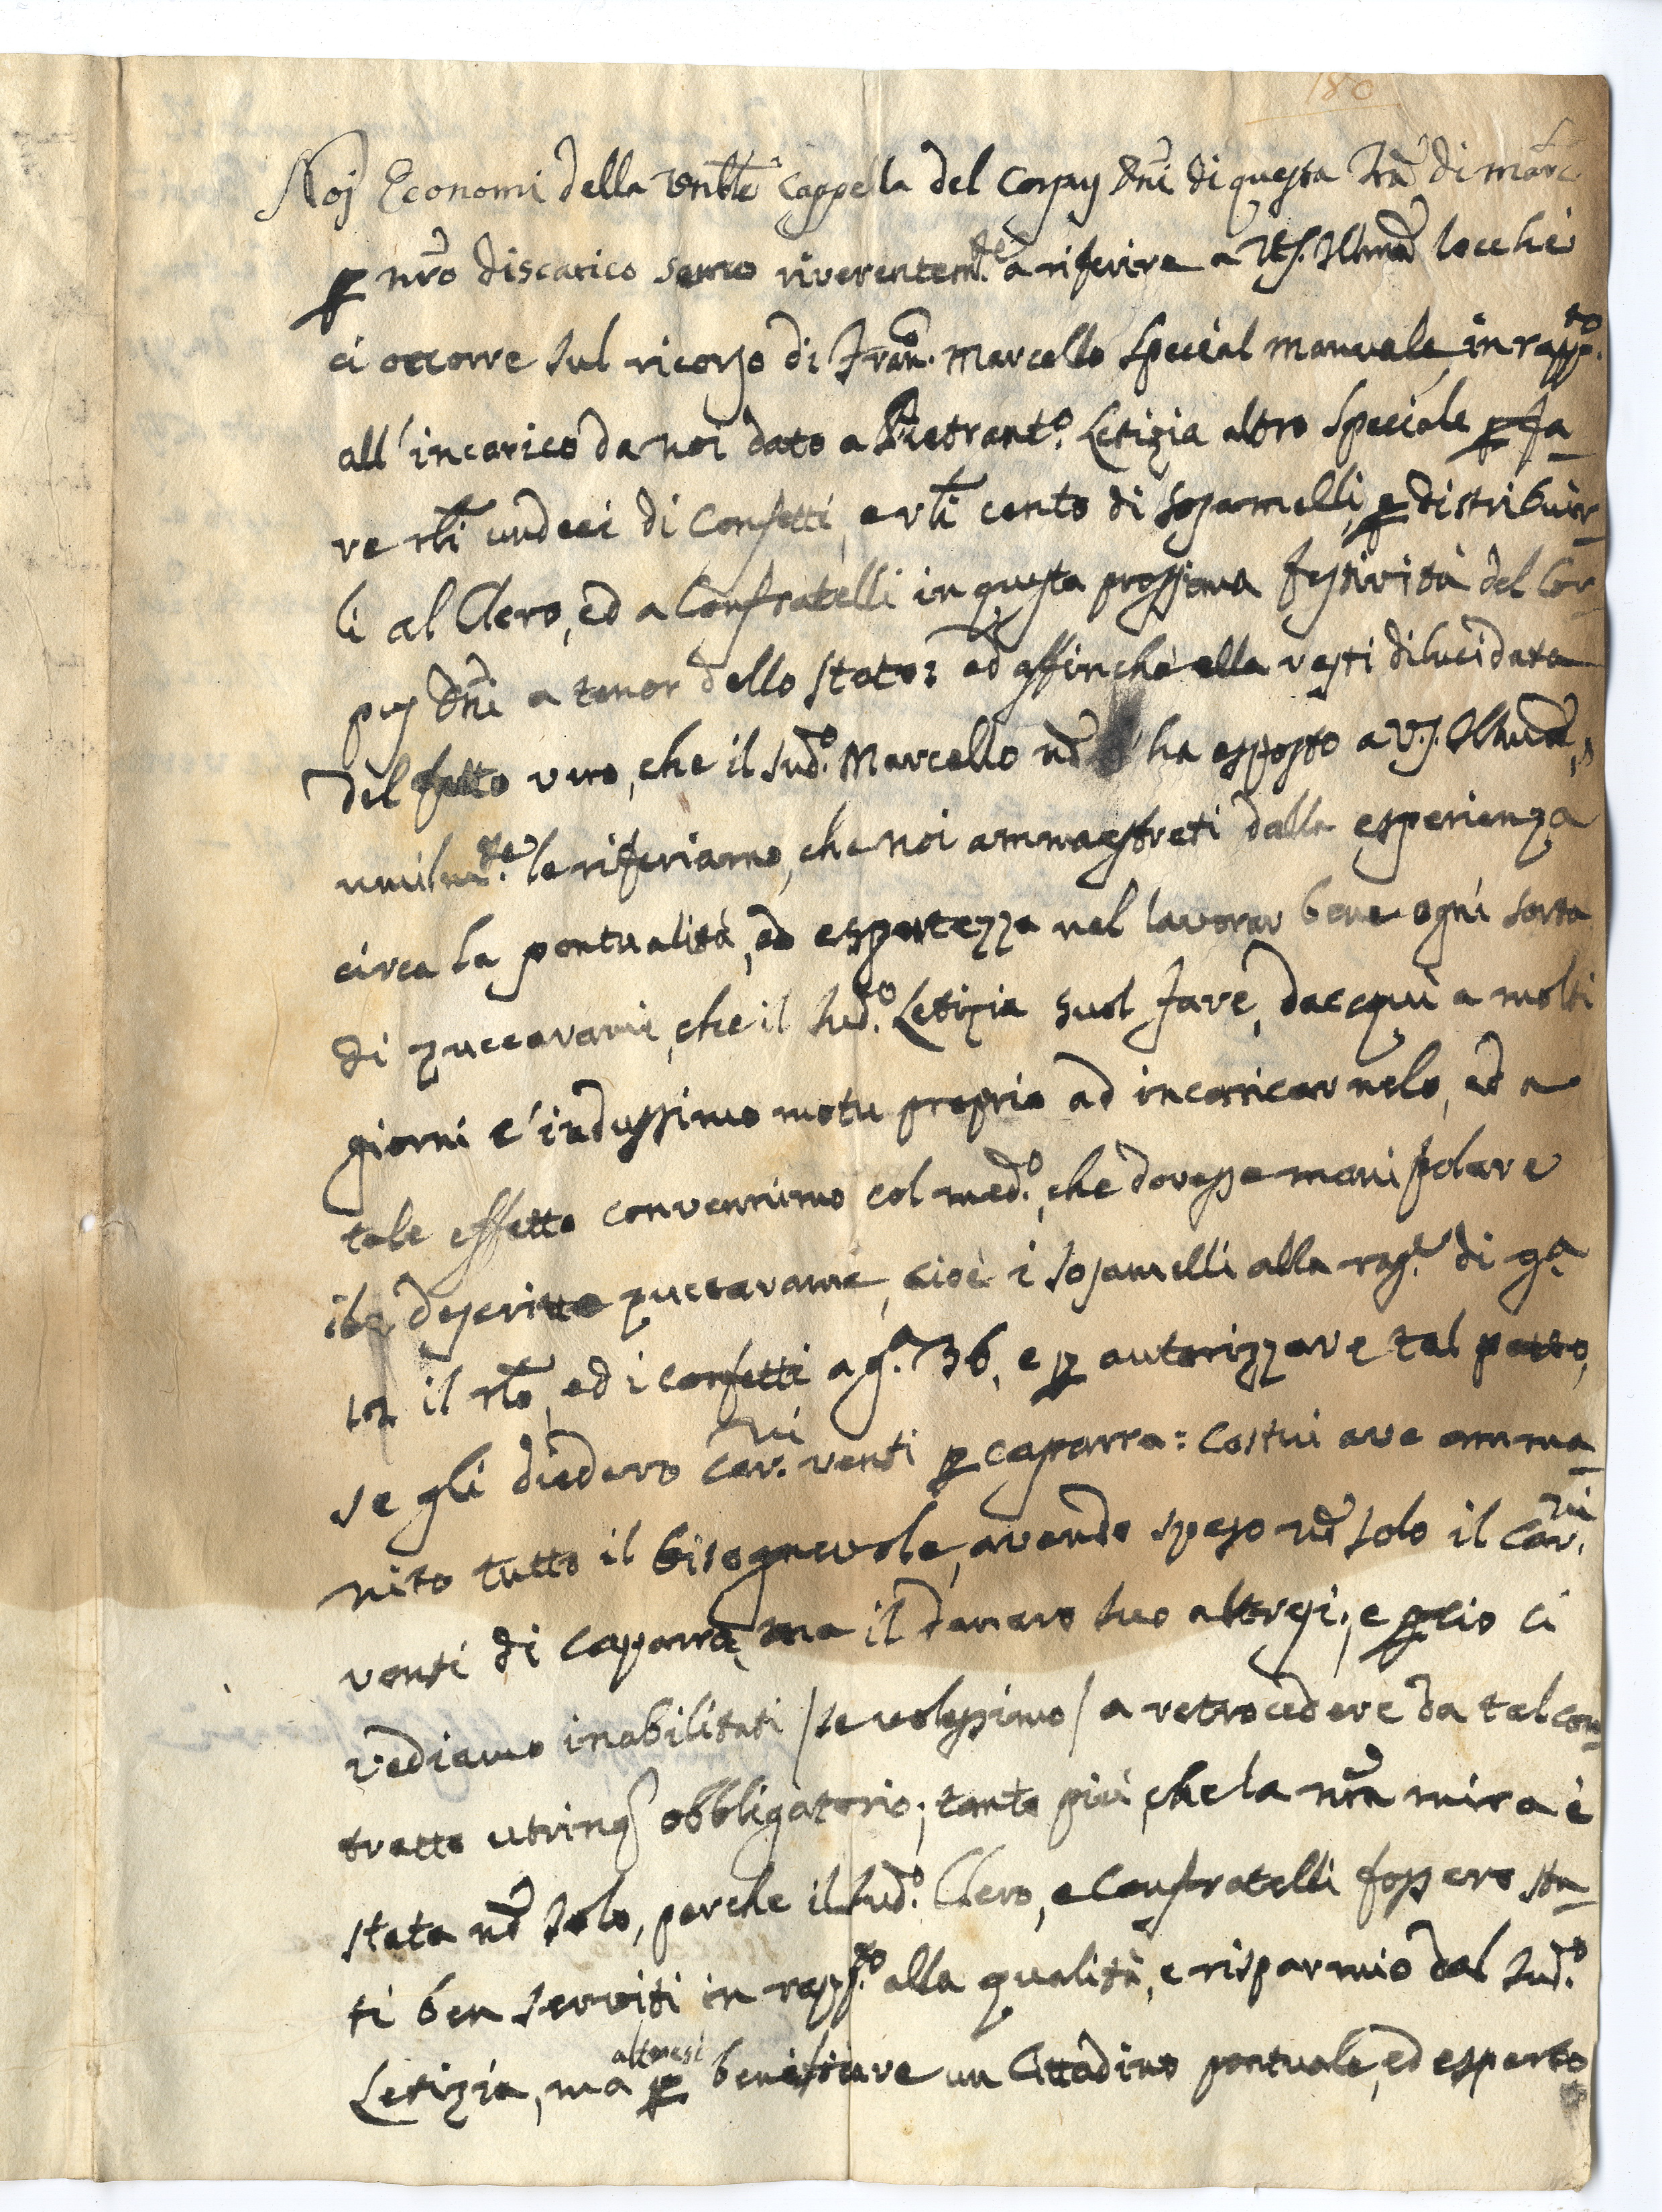 180
Noj Economi della Venble Cappella del Corpus Dni di questa Tra di
p nro discarico semo riverentemte a riferire a V.S. Illma locche
ci occorre sul ricorso di Fran. Marcello Special manuale, in rappto
all'incarico da noi dato a Pietranto. Letizia altro Speciale p fa-
re rtli undeci di Confetti, e rtli cento di sosamelli, p distribuir-
li al Clero, ed a Confratelli in questa prossima festività del Cor-
pus Dni a tenor dello stato: ed affinchè ella resti dilucidata
del fatto vero, che il sudo. Marcello nō ha esposto a V.S. Illma,
umilmte. le riferiamo, che noi ammaestrati dalla esperienza
circa la pontualità, ed espertezza nel lavorar bene ogni sorta
di zuccarami, che il sudo. Letizia suol fare, dacqui a molti
giorni c'indussimo motu proprio ad incarricarnelo, ed a
tale effetto convennimo col medo., che dovesse manipolare
descritto zuccarame, cioè i sosamelli alla rage. di ga.
il rtlo, ed i confetti a ga. 36, e p autorizzare tal patto,
se gli diedero Car.ni venti p caparra: costui ave amma-
nito tutto il bisognevole, avendo speso nō solo il Car.ni
venti di caparra, ma il danaro suo altresi; e p cio ci
vediamo inabilitati / se volessimo / a retrocedere da tal con-
tratto utrinq obbligatorio; tanto più, che la nra mira è
stata nō solo, perche il sudo. Clero, e Confratelli fossero sta-
ti ben serviti in rappto. alla qualità, e risparmio dal sudo.
altresi
Letizia, ma p beneficare un Cittadino pontuale, ed esperto